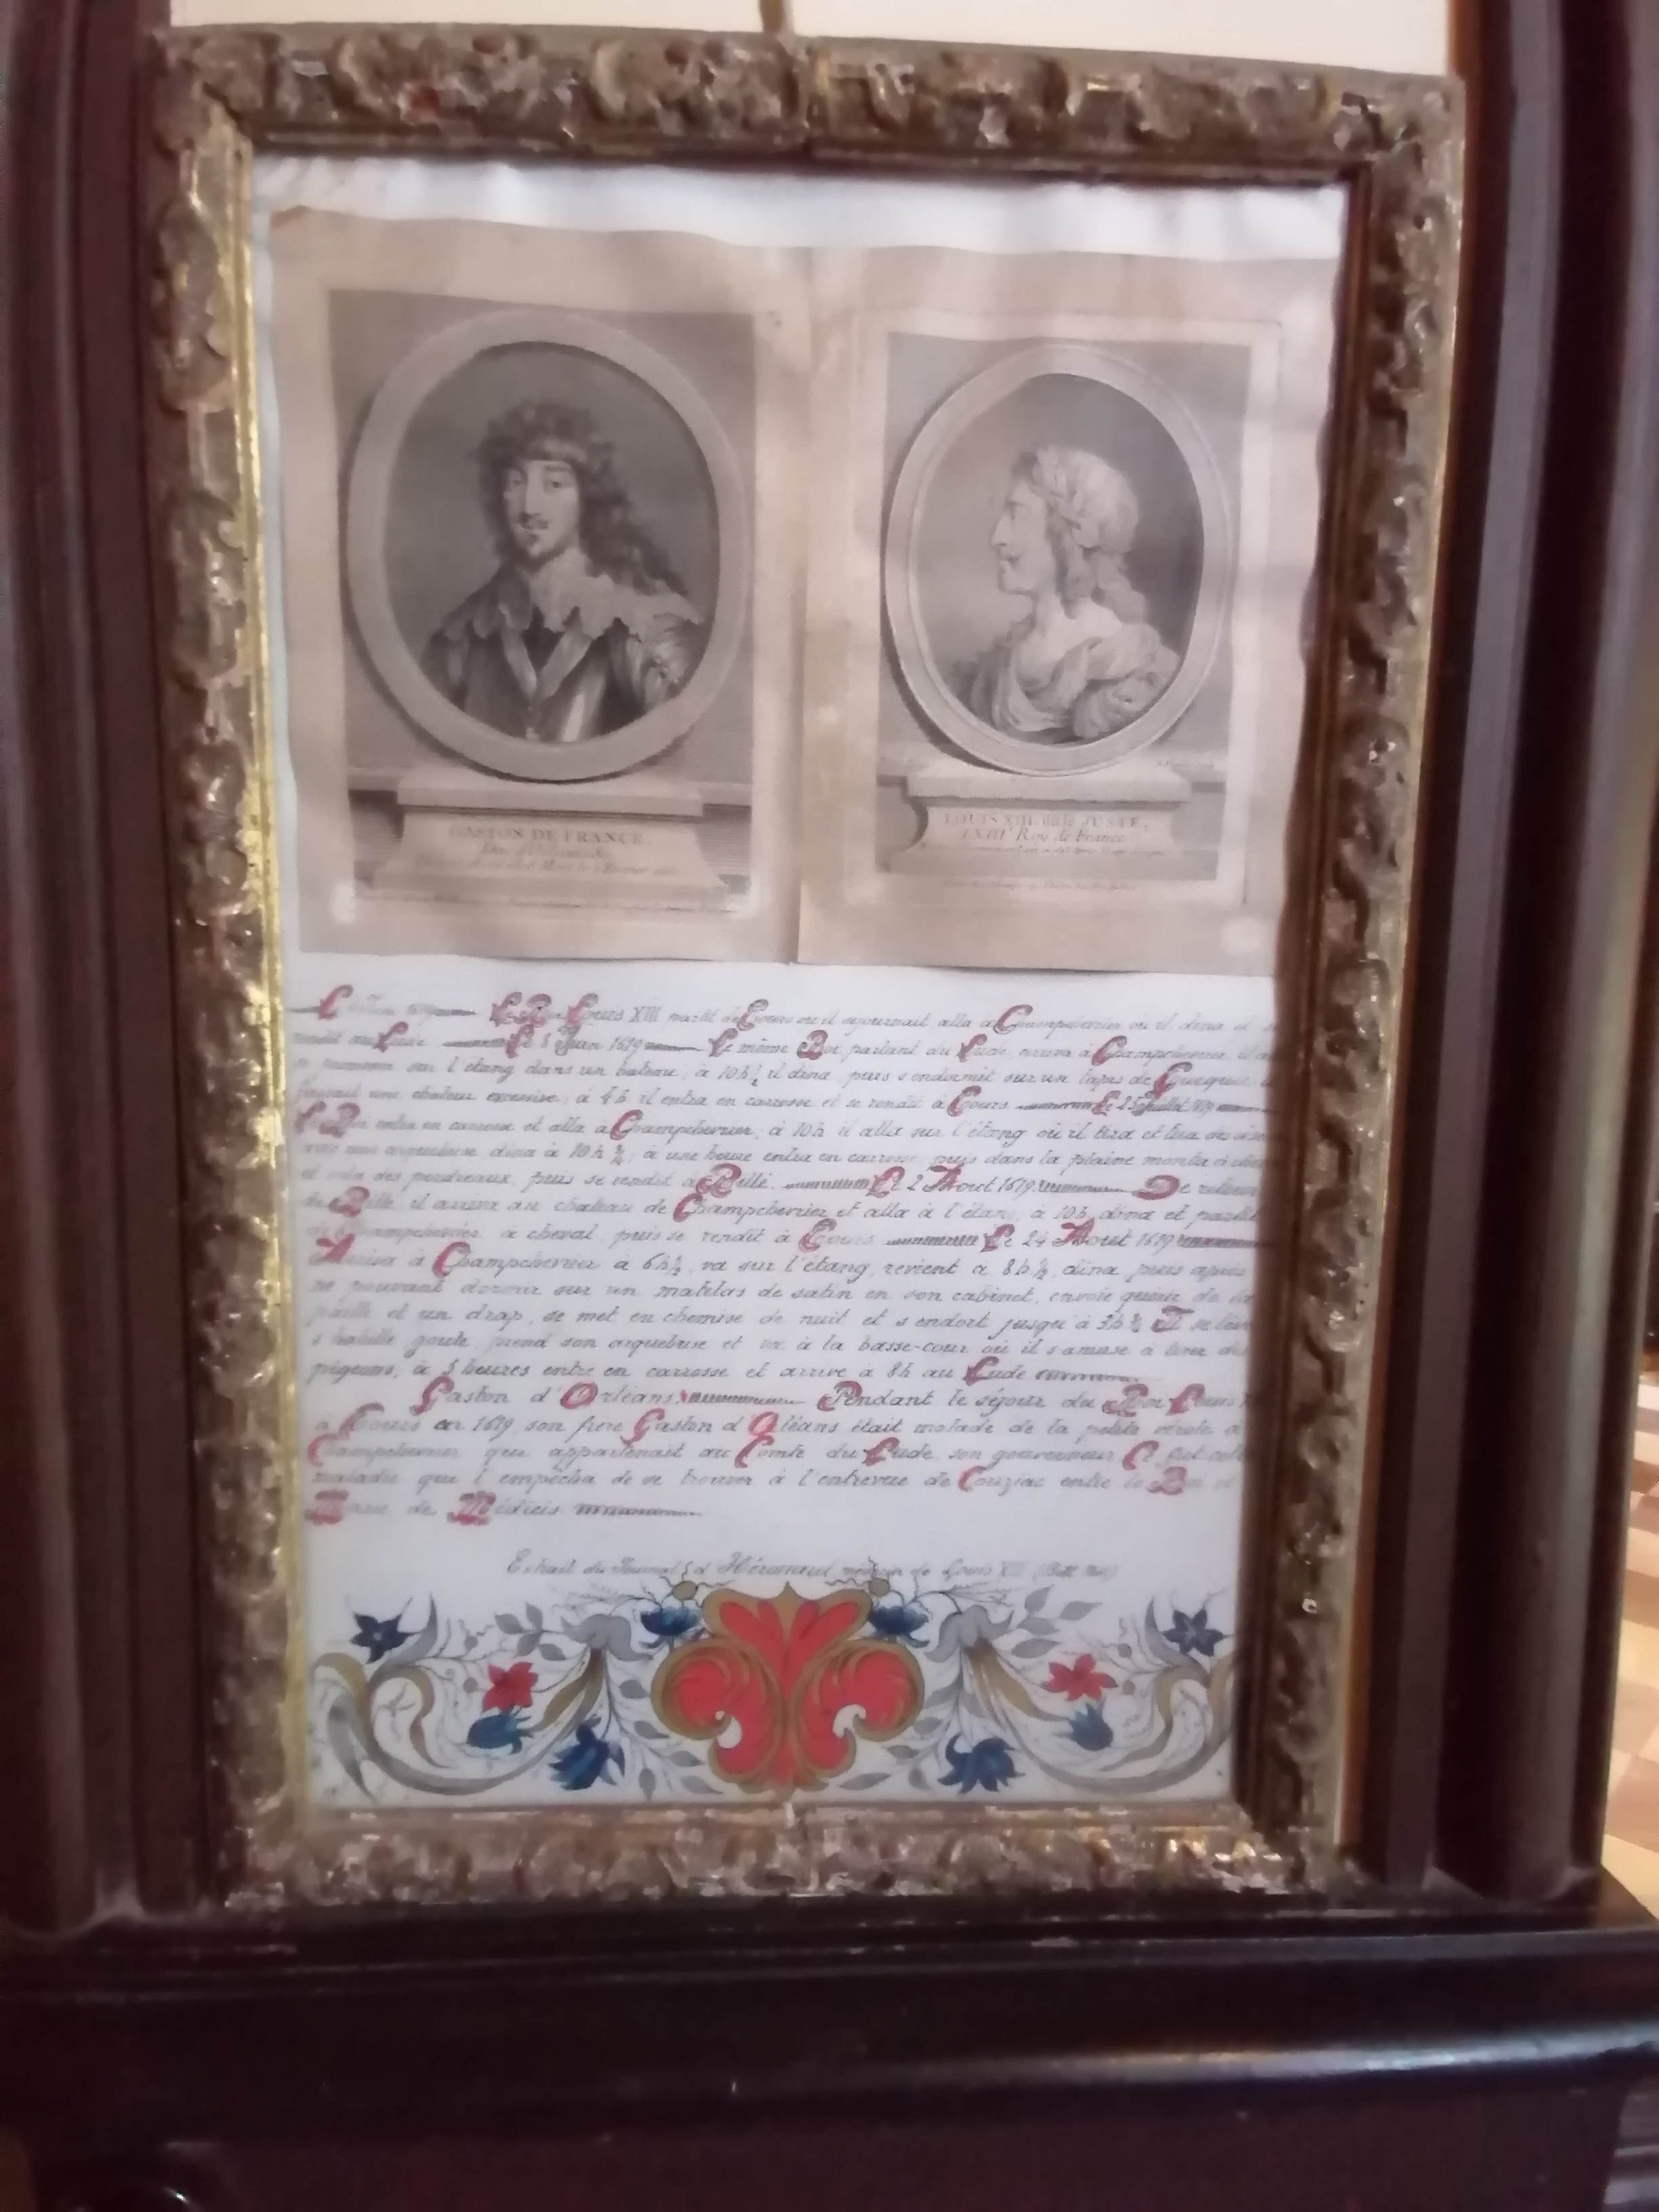 GASTON DE FRANCE,
LOUIS XIII. dit le JUSTE,
LXIII.e Roy de France
Louis XIII partit de Tours où il séjournait, alla à Champchevrier où il dina et
rendit au Lude Le 5 Juin 1619 Le même Roi partant du Lude, arriva à Champchevrier
sur l'étang dans un bateau, à 10h ½ il dina, puis s'endormit sur un tapis de
faisait une chaleur excessive, à 4h il entra en carrosse et se rendit à Tours Le 25 Juillet 1619
Le Roi entra en carrosse et alla à Champchevrier, à 10h il alla sur l'étang où il tira et tua des
avec une arquebuse, dina à 10h ¾, à une heure entra en carrosse, puis dans la plaine monta à
et vola des perdreaux, puis se rendit à Rillé. Le 2 Aout 1619 De retour
de Rillé, il arriva au chateau de Champchevrier et alla à l'étang, à 10h, dina et partit
de Champchevrier à cheval, puis se rendit à Tours Le 24 Aout 1619
Arriva à Champchevrier à 6h½, va sur l'étang, revient à 8h½, dina, puis après
ne pouvant dormir sur un matelas de satin en son cabinet, envoie querir de la
paille et un drap, se met en chemise de nuit et s'endort jusqu'à 3h ½ Il se lève
s'habille, goute, prend son arquebuse et va à la basse-cour où il s'amuse à tirer des
pigeons, à 5 heures entre en carrosse et arrive à 8h au Lude
Gaston d'Orléans. Pendant le séjour du Roi Louis
à Tours en 1619, son frère Gaston d'Orléans était malade de la petite vérole à
Champchevrier qui appartenait au Comte du Lude, son gouverneur. Ce fut
maladie qui l'empêcha de se trouver à l'entrevue de Couziac entre le Roi et
Marie de Médicis.
Extrait du Journal d'Héronard médecin de Louis XIII (Bibl. Nat.)